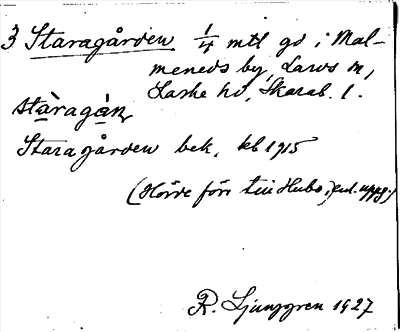 3 Staragården 1/4 mtl gd i Mal-
meneds by, Larvs sn,
Laske hd, Skarab. l.
stàragàn
Staragården bek. kb 1915
(Hörde förr till Hubo, enl. uppg.)
R. Ljunggren 1927